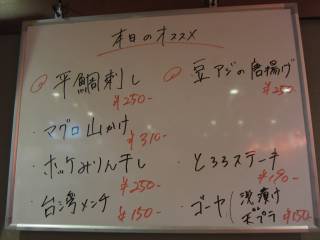 本日のオススメ
平鯛刺し
¥250-
・マグロ山かけ
¥310-
・ホッケみりん干し
¥250-
・台湾メンチ
¥150-
豆アジの唐揚げ
¥250-
・とろろステーキ
¥190-
・ゴーヤ 浅漬け
天ぷら ¥150-